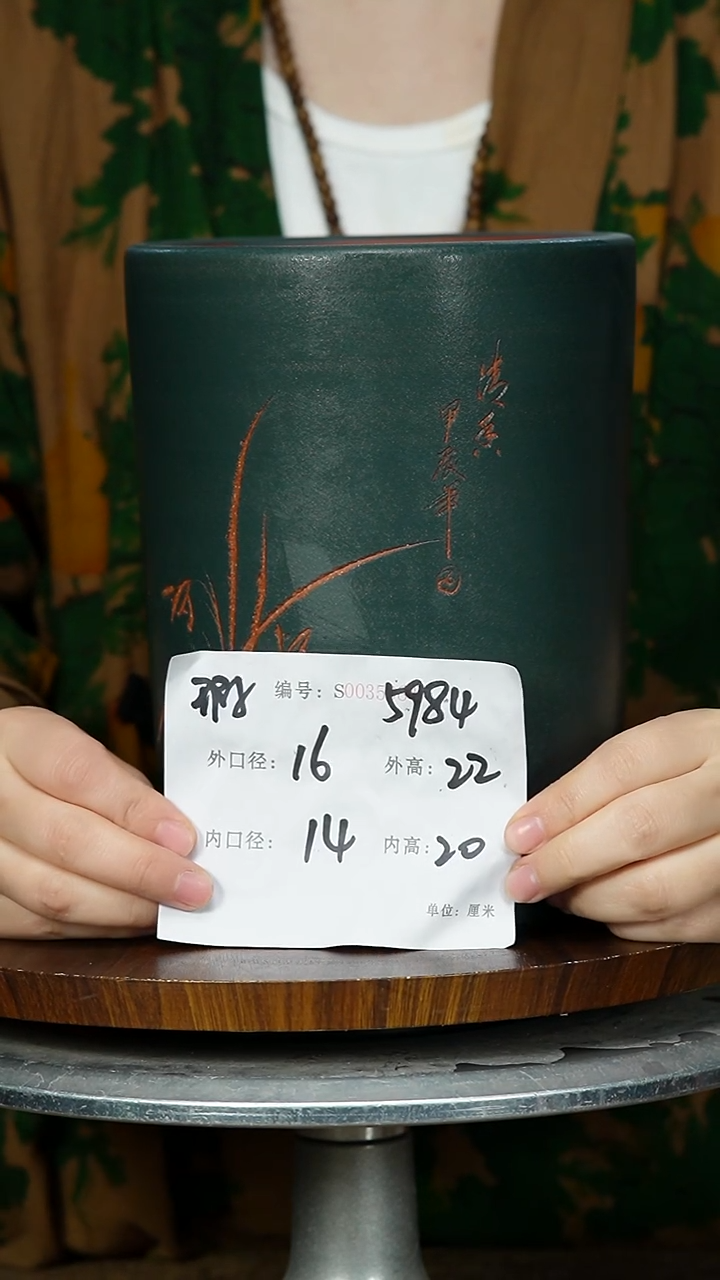 清香
甲辰年
编号：S0035 5984
外口径：16 外高：22
内口径：14 内高：20
单位：厘米